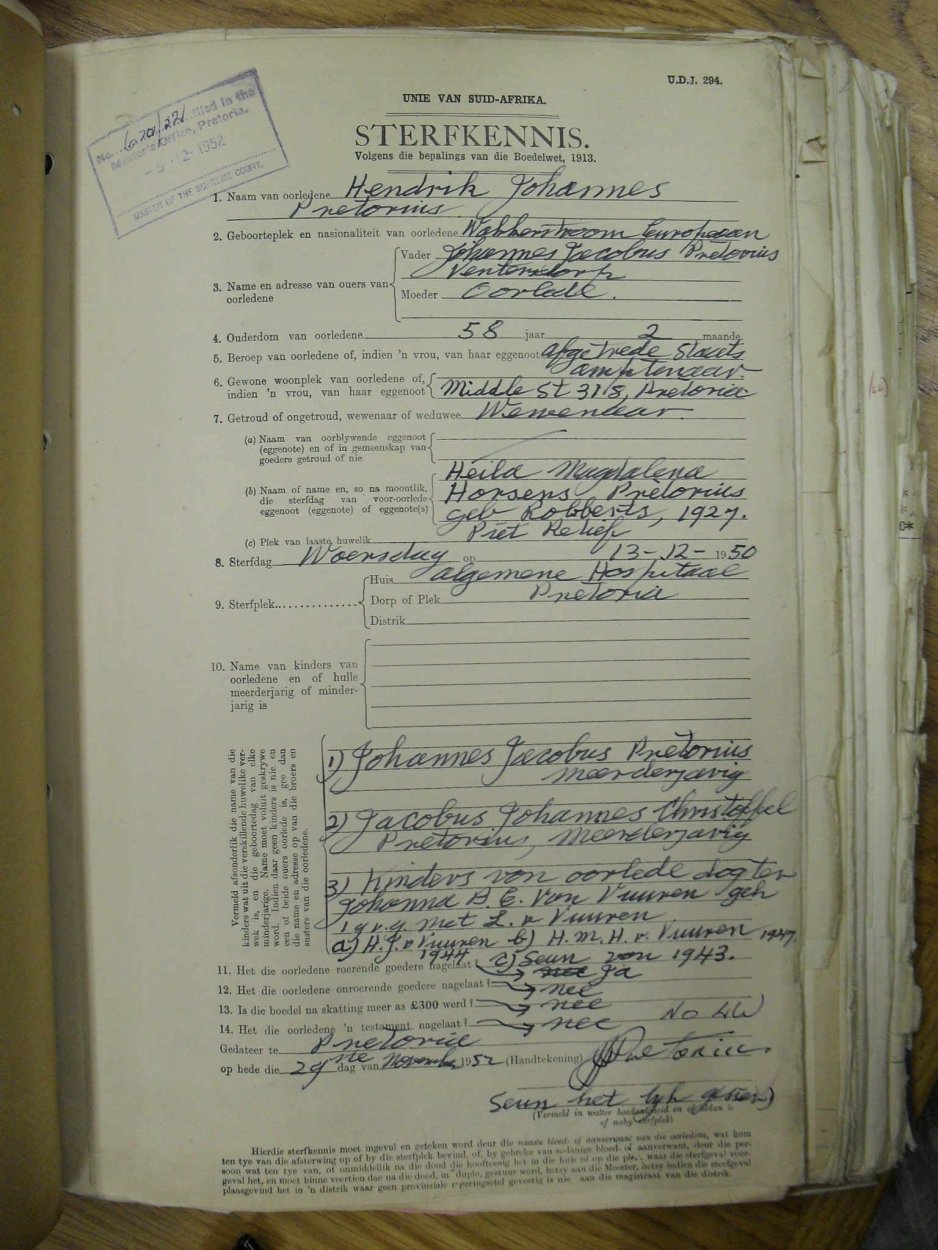 U.D.J. 294.
UNIE VAN SUID-AFRIKA.
STERFKENNIS.
Volgens die bepalings van die Boedelwet, 1913.
No. filed in the
Master's Office, Pretoria.
-5-12-1952
MASTER OF THE SUPREME COURT.
1. Naam van oorledene Hendrik Johannes
Pretorius
2. Geboorteplek en nasionaliteit van oorledene Wakkerstroom European
3. Name en adresse van ouers van oorledene
Vader Johannes Jacobus Pretorius
Ventersdorp
Moeder Oorlede.
4. Ouderdom van oorledene 58 jaar 2 maande
5. Beroep van oorledene of, indien 'n vrou, van haar eggenoot afgetrede Staats
amptenaar
6. Gewone woonplek van oorledene of,
indien 'n vrou, van haar eggenoot Middle St 318, Pretoria
7. Getroud of ongetroud, wewenaar of weduwee Wewenaar
(a) Naam van oorblywende eggenoot
(eggenote) en of in gemeenskap van
goedere getroud of nie
(b) Naam of name en, so na moontlik,
die sterfdag van voor-oorlede
eggenoot (eggenote) of eggenote(s)
Heila Magdalena
Horsens Pretorius
geb Robberts, 1927.
(c) Plek van laaste huwelik Piet Retief
8. Sterfdag Woensdag op 13-12-1950
9. Sterfplek
Huis algemene Hospitaal
Dorp of Plek Pretoria
Distrik
10. Name van kinders van
oorledene en of hulle
meerderjarig of minder-
jarig is
Vermeld afsonderlik die name van die
kinders wat uit die verskillende huwelike ver-
wek is, en die geboortedag van elke
minderjarige. Name moet voluit geskrywe
word. Indien daar geen kinders is nie en
een of beide ouers oorlede is, gee dan
die name en adresse op van die broers en
susters van die oorledene.
1) Johannes Jacobus Pretorius
meerderjarig
2) Jacobus Johannes Christoffel
Pretorius, meerderjarig
3) Kinders van oorlede dogter
Johanna A. E. Van Vuuren geb
met L. v Vuuren
a) H. J. v Vuuren b) H. M. H. v. Vuuren 1947.
1944 c) Seun van 1943.
11. Het die oorledene roerende goedere nagelaat? nee ja
12. Het die oorledene onroerende goedere nagelaat? nee
13. Is die boedel na skatting meer as £300 werd? nee
14. Het die oorledene 'n testament nagelaat? nee
Gedateer te Pretoria
op hede die 29ste dag van November 1952 (Handtekening) Pretorius.
Seun het lyk gesien)
(Vermeld in watter hoedanigheid en of
of naby sterfplek)
Hierdie sterfkennis moet ingevul en geteken word deur die naaste bloed- of aanverwant van die oorledene, wat hom
ten tye van die afsterwing op of by die sterfplek bevind, of, by gebreke van sodanige bloed- of aanverwant, deur die per-
soon wat ten tye van, of onmiddellik na die dood die hooftoesig het in die huis of op die plek, waar die sterfgeval voor-
geval het, en moet binne veertien dae na die dood, in duplo, gestuur word, hetsy aan die Meester, hetsy indien die sterfgeval
plaasgevind het in 'n distrik waar geen provinsiale registrasie gevestig is nie aan die magistraat van die distrik.